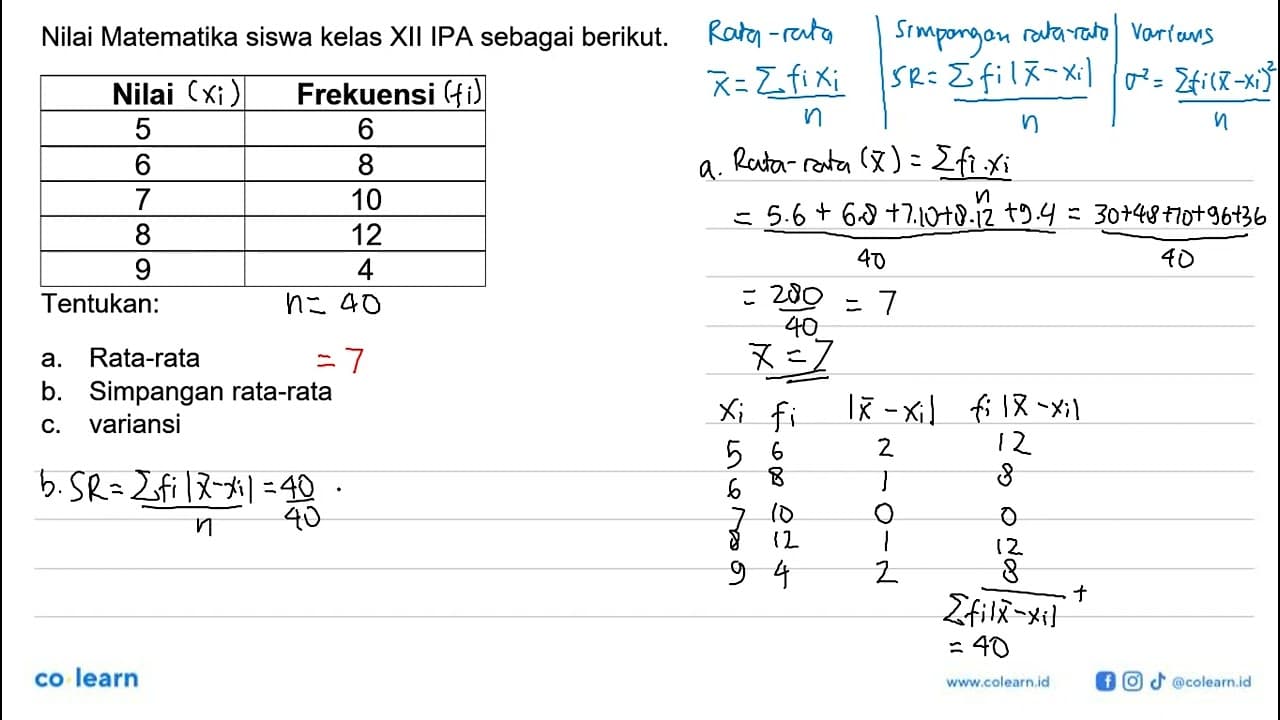 Nilai Matematika siswa kelas XII IPA sebagai berikut.
Nilai (xi) Frekuensi (fi)
5 6
6 8
7 10
8 12
9 4
Tentukan: n = 40
a. Rata-rata = 7
b. Simpangan rata-rata
c. variansi
b. SR = Σfi|x̄-xi|/n = 40/40 .
Rata-rata
x̄ = Σfixi/n
Simpangan rata-rata
SR = Σfi|x̄-xi|/n
Varians
σ² = Σfi(x̄-xi)²/n
a. Rata-rata (x̄) = Σfi.xi/n
= 5.6 + 6.8 + 7.10 + 8.12 + 9.4/40 = 30+48+70+96+36/40
= 280/40 = 7
x̄ = 7
xi fi |x̄-xi| fi|x̄-xi|
5 6 2 12
6 8 1 8
7 10 0 0
8 12 1 12
9 4 2 8 +
Σfi|x̄-xi|
= 40
co learn
www.colearn.id @colearn.id